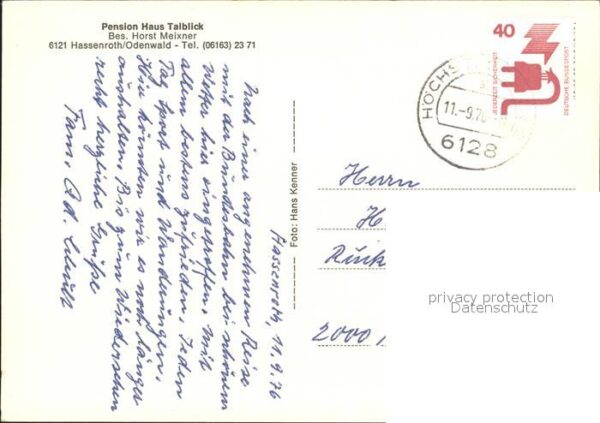 Pension Haus Talblick
Bes. Horst Meixner
6121 Hassenroth/Odenwald - Tel. (06163) 23 71
Hassenroth, 11.9.76
Nach einer angenehmen Reise
mit der Bundesbahn bei schönem
Wetter hier eingetroffen. Mit
allem bestens zufrieden. Jeden
Tag Sport und Wanderungen.
Hier könnten wir es noch länger
aushalten. Bis zum Wiedersehen
recht herzliche Grüße
Fam. Ad.
Foto: Hans Kenner
40
JEDERZEIT SICHERHEIT
DEUTSCHE BUNDESPOST
HÖCHS
11.-9.76
6128
Herrn
H
Rück
2000
privacy protection
Datenschutz